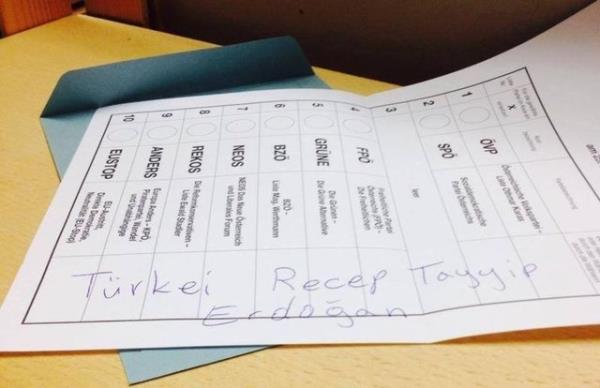 Liste Nr.
Für die gewählte
Partei im Kreis ein
X
einsetzen!
1
ÖVP
Österreichische Volkspartei –
Liste Othmar Karas
2
SPÖ
Sozialdemokratische
Partei Österreichs
3
leer
4
FPÖ
Freiheitliche Partei
Österreichs (FPÖ) –
Die Freiheitlichen
5
GRÜNE
Die Grünen –
Die Grüne Alternative
6
BZÖ
BZÖ –
Liste Mag. Werthmann
7
NEOS
NEOS Das Neue Österreich
und Liberales Forum
8
REKOS
Die Reformkonservativen –
Liste Ewald Stadler
9
ANDERS
Europa Anders – KPÖ,
Piratenpartei, Wandel
und Unabhängige
10
EUSTOP
EU-Austritt,
Direkte Demokratie,
Neutralität (EU-Stop)
Türkei Recep Tayyip
Erdoğan